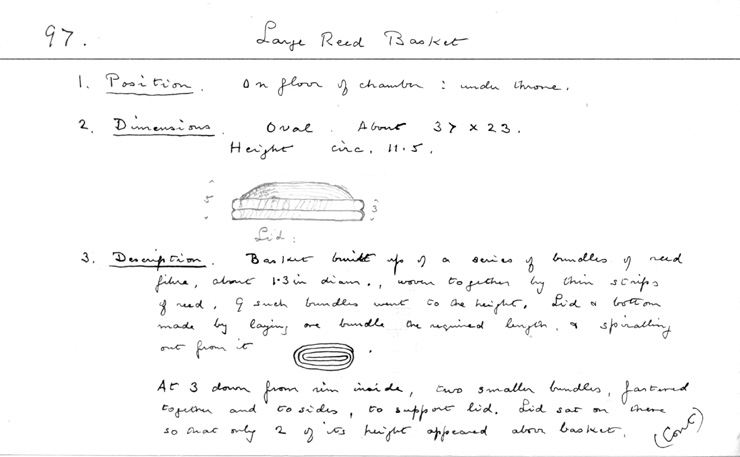 97.
Large Reed Basket
1. Position. On floor of chamber : under throne.
2. Dimensions. Oval. About 37 x 23.
Height circ. 11.5.
5
3
Lid:
3. Description. Basket built up of a series of bundles of reed
fibre, about 1.3 in diam., woven together by thin strips
of reed. 9 such bundles went to the height. Lid & bottom
made by laying one bundle the required length, & spiralling
out from it .
At 3 down from rim inside, two smaller bundles, fastened
together and to sides, to support lid. Lid sat on these
so that only 2 of its height appeared above basket.
(Cont)